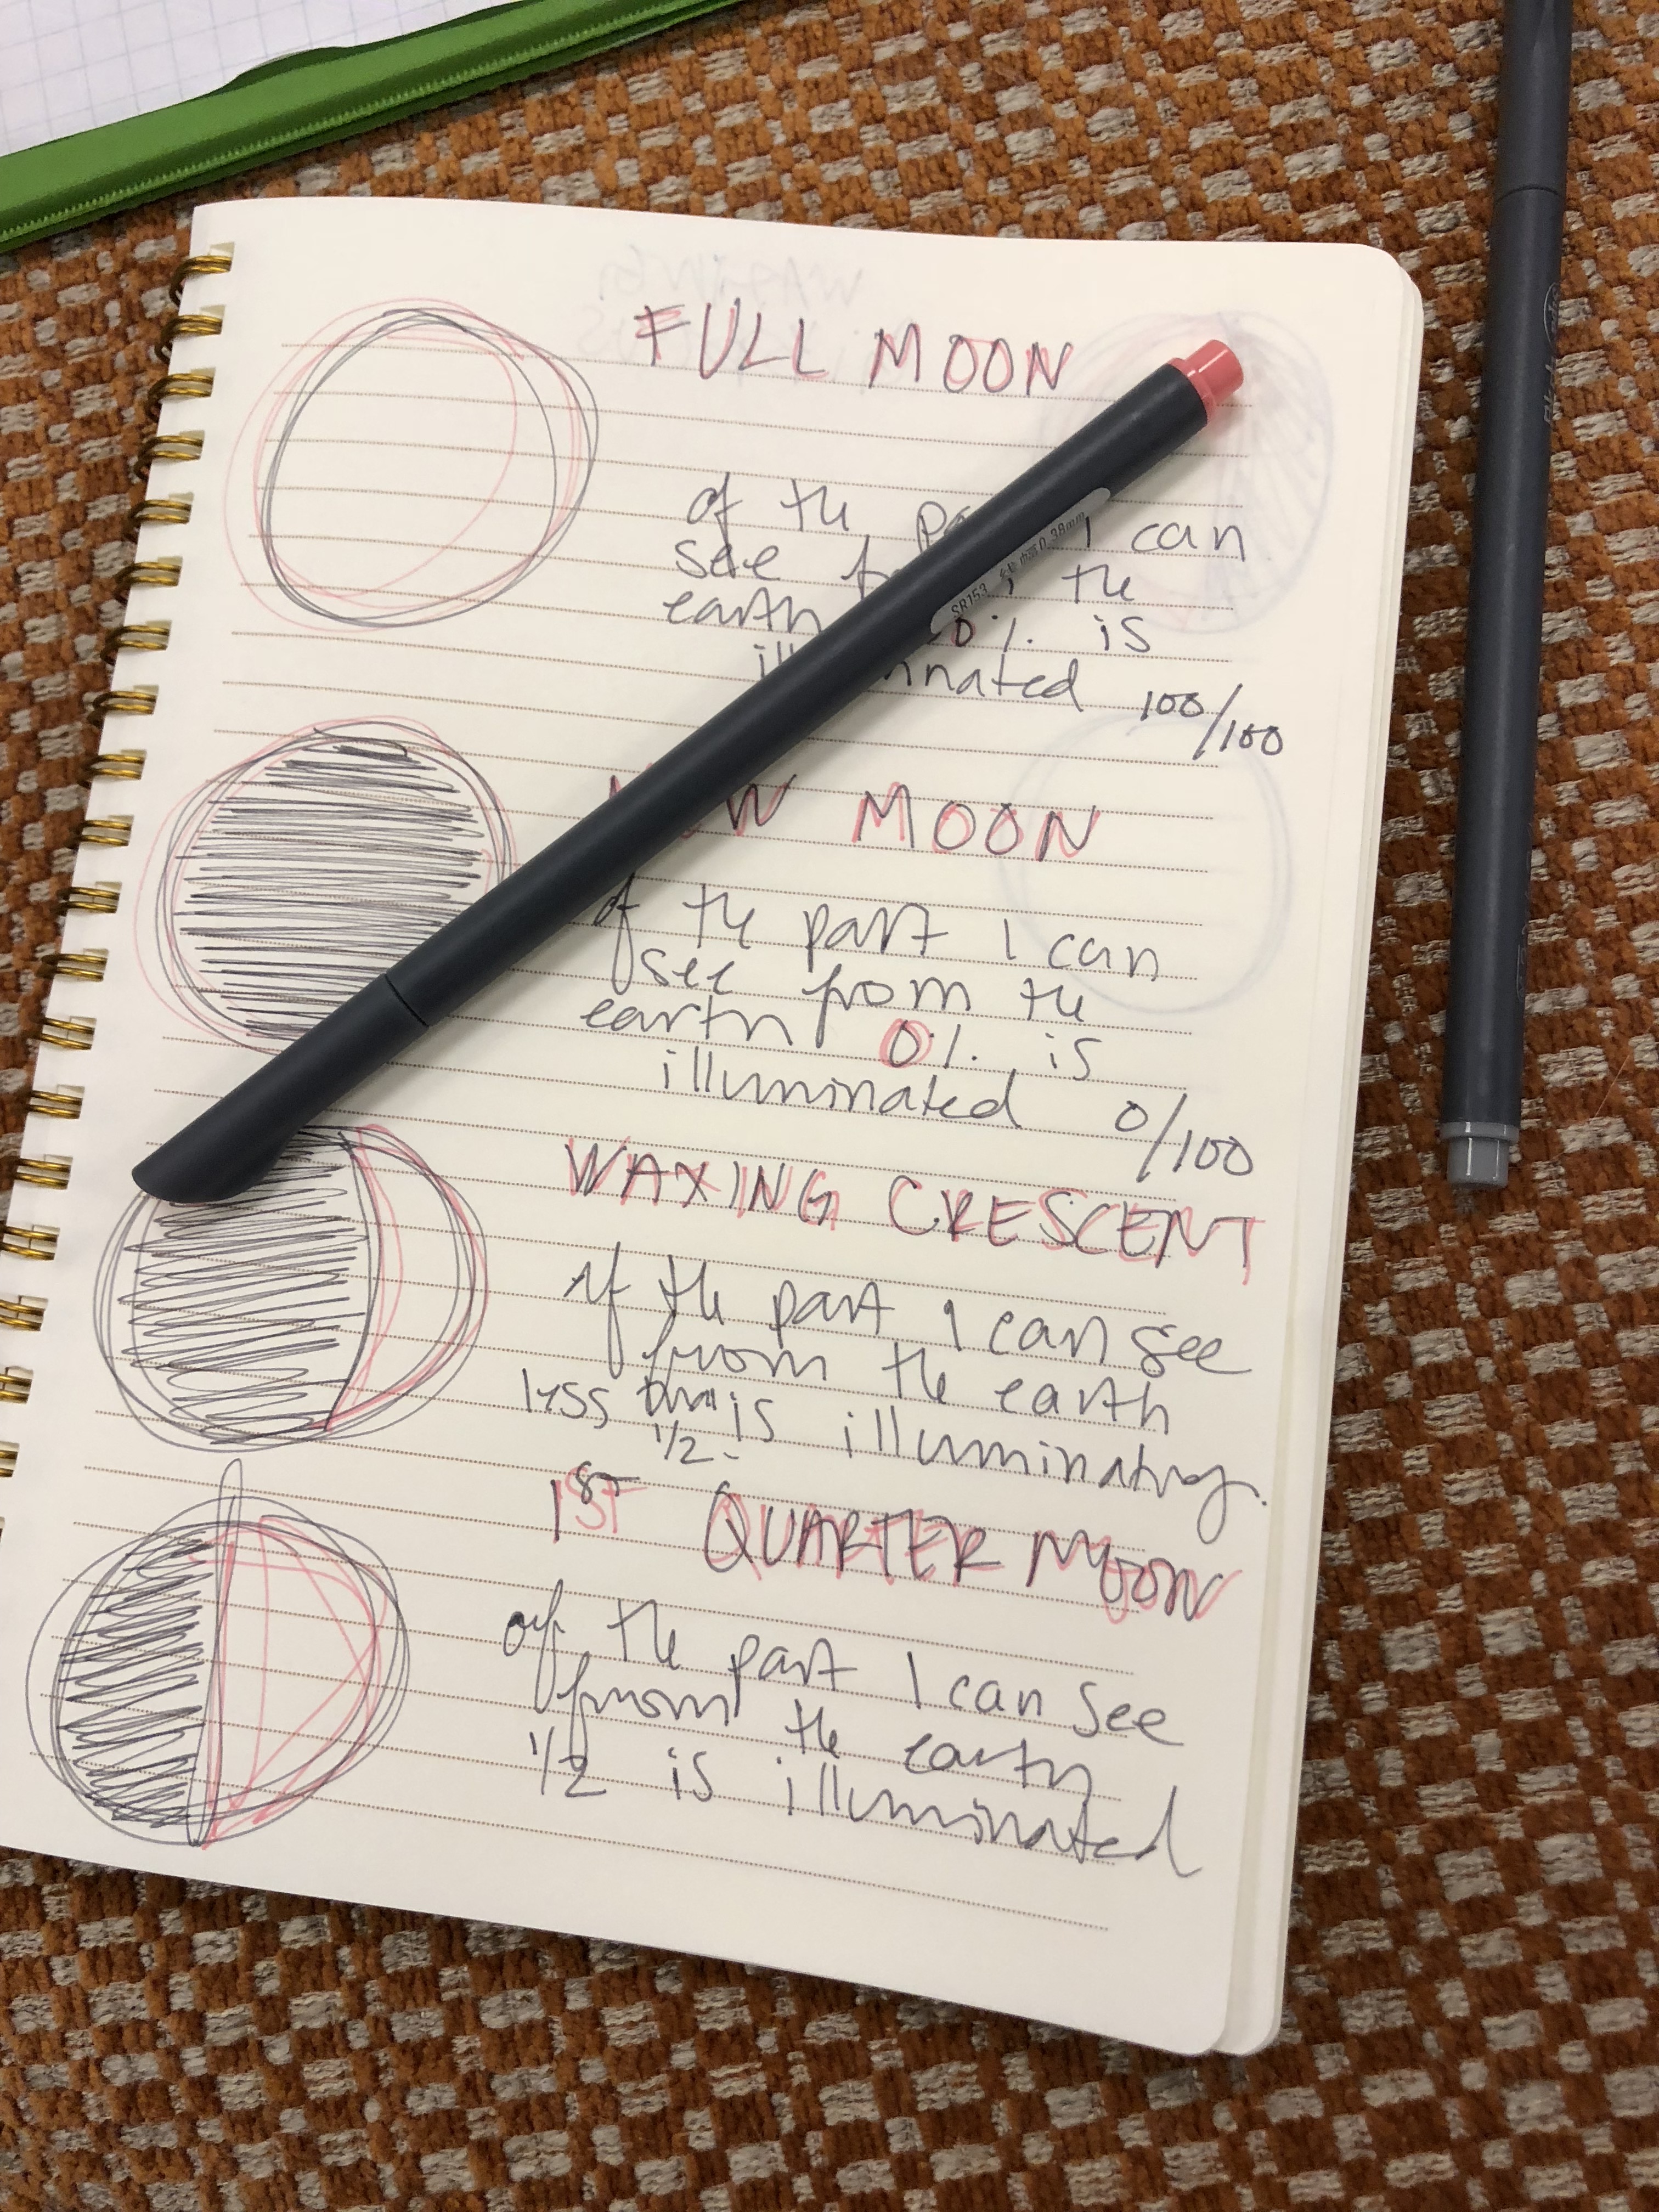 FULL MOON
of the can
see the
earth 0% is
100/100
MOON
of the part I can
see from the
earth 0% is
illuminated 0/100
WAXING CRESCENT
of the part I can see
from the earth
less than is illuminating.
1/2
1ST QUARTER MOON
of the part I can see
from the earth
1/2 is illuminated
SR153 0.38mm